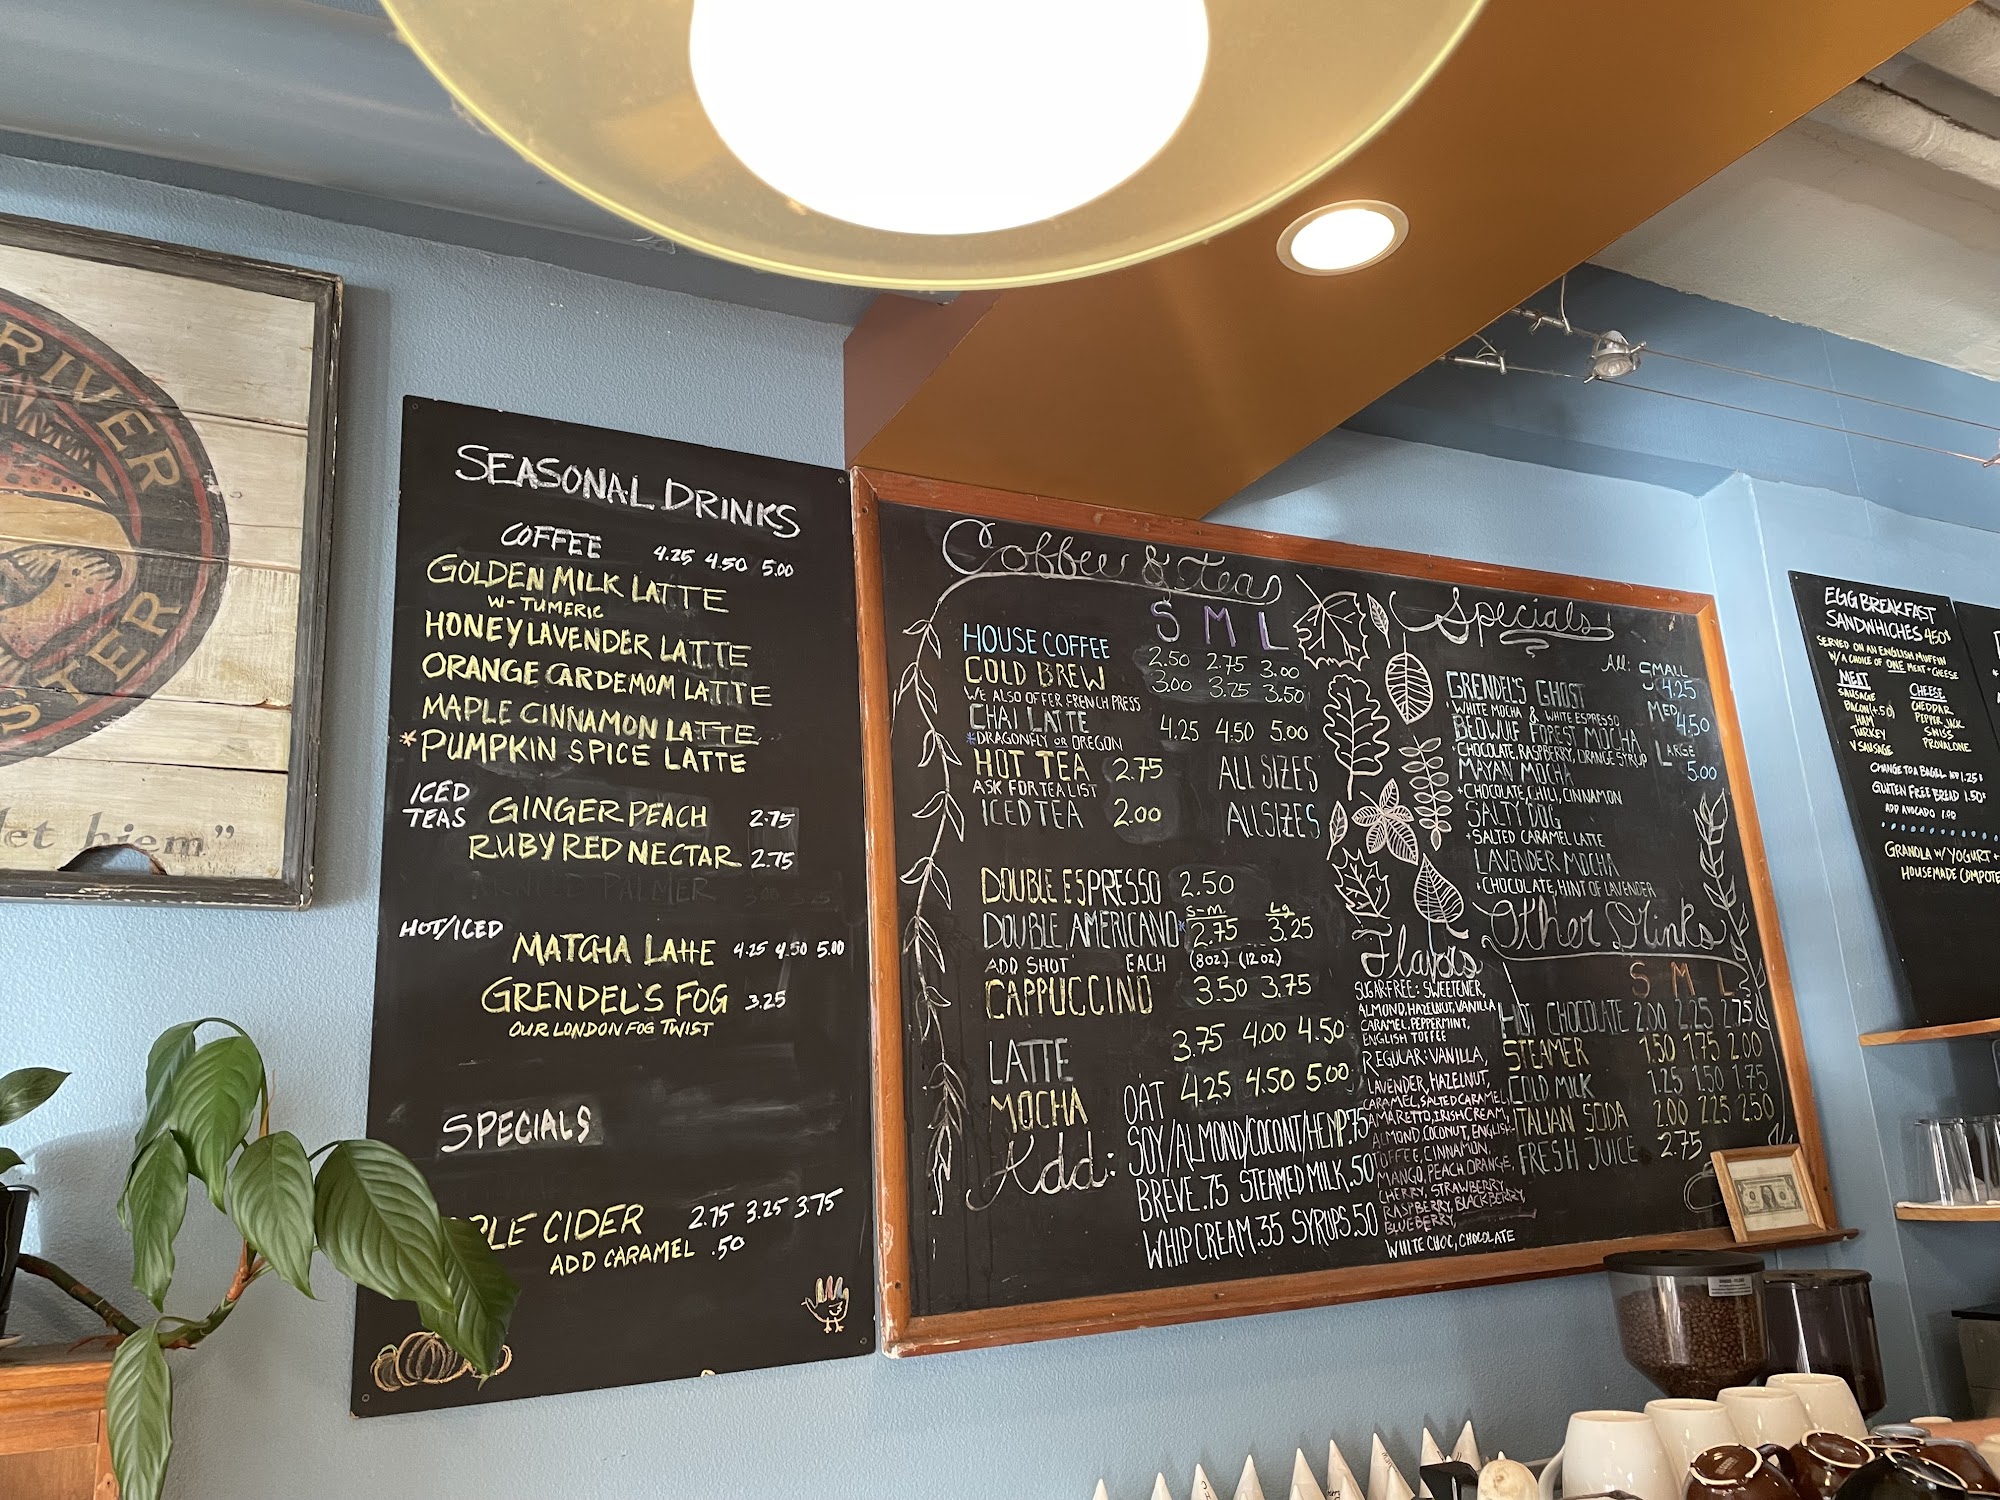 RIVER
STER
let hiem"
SEASONAL DRINKS
COFFEE 4.25 4.50 5.00
GOLDEN MILK LATTE
W- TUMERIC
HONEY LAVENDER LATTE
ORANGE CARDEMOM LATTE
MAPLE CINNAMON LATTE
*PUMPKIN SPICE LATTE
ICED TEAS GINGER PEACH 2.75
RUBY RED NECTAR 2.75
ARNOLD PALMER
HOT/ICED
MATCHA LATTE 4.25 4.50 5.00
GRENDEL'S FOG 3.25
OUR LONDON FOG TWIST
SPECIALS
PLE CIDER 2.75 3.25 3.75
ADD CARAMEL .50
Coffee & Tea
S M L
HOUSE COFFEE 2.50 2.75 3.00
COLD BREW 3.00 3.25 3.50
WE ALSO OFFER FRENCH PRESS
CHAI LATTE 4.25 4.50 5.00
*DRAGONFLY OR OREGON
HOT TEA 2.75 ALL SIZES
ASK FOR TEA LIST
ICED TEA 2.00 ALL SIZES
DOUBLE ESPRESSO 2.50
S-M Lg
DOUBLE AMERICANO* 2.75 3.25
ADD SHOT EACH (8oz) (12oz)
CAPPUCCINO 3.50 3.75
LATTE 3.75 4.00 4.50
MOCHA 4.25 4.50 5.00
Add: OAT
SOY/ALMOND/COCONT/HEMP .75
BREVE .75 STEAMED MILK .50
WHIP CREAM .35 SYRUPS .50
Specials
All: SMALL 4.25
MED 4.50
LARGE 5.00
GRENDEL'S GHOST
WHITE MOCHA & WHITE ESPRESSO
BEOWULF FOREST MOCHA
CHOCOLATE, RASPBERRY, ORANGE SYRUP
MAYAN MOCHA
CHOCOLATE, CHILI, CINNAMON
SALTY DOG
SALTED CARAMEL LATTE
LAVENDER MOCHA
CHOCOLATE, HINT OF LAVENDER
Flavors
SUGARFREE: SWEETENER,
ALMOND, HAZELNUT, VANILLA
CARAMEL, PEPPERMINT,
ENGLISH TOFFEE
REGULAR: VANILLA,
LAVENDER, HAZELNUT,
CARAMEL, SALTED CARAMEL,
AMARETTO, IRISH CREAM,
ALMOND, COCONUT, ENGLISH
TOFFEE, CINNAMON,
MANGO, PEACH, ORANGE,
CHERRY, STRAWBERRY,
RASPBERRY, BLACKBERRY,
BLUEBERRY,
WHITE CHOC, CHOCOLATE
Other Drinks
S M L
HOT CHOCOLATE 2.00 2.25 2.75
STEAMER 1.50 1.75 2.00
COLD MILK 1.25 1.50 1.75
ITALIAN SODA 2.00 2.25 2.50
FRESH JUICE 2.75
EGG BREAKFAST
SANDWHICHES 4.50
SERVED ON AN ENGLISH MUFFIN
W/A CHOICE OF ONE MEAT + CHEESE
MEAT CHEESE
SAUSAGE CHEDDAR
BACON (+.50) PEPPER JACK
HAM SWISS
TURKEY PROVALONE
V SAUSAGE
CHANGE TO A BAGEL 1.25
GLUTEN FREE BREAD 1.50
ADD AVOCADO 1.00
GRANOLA W/ YOGURT +
HOUSEMADE COMPOTE